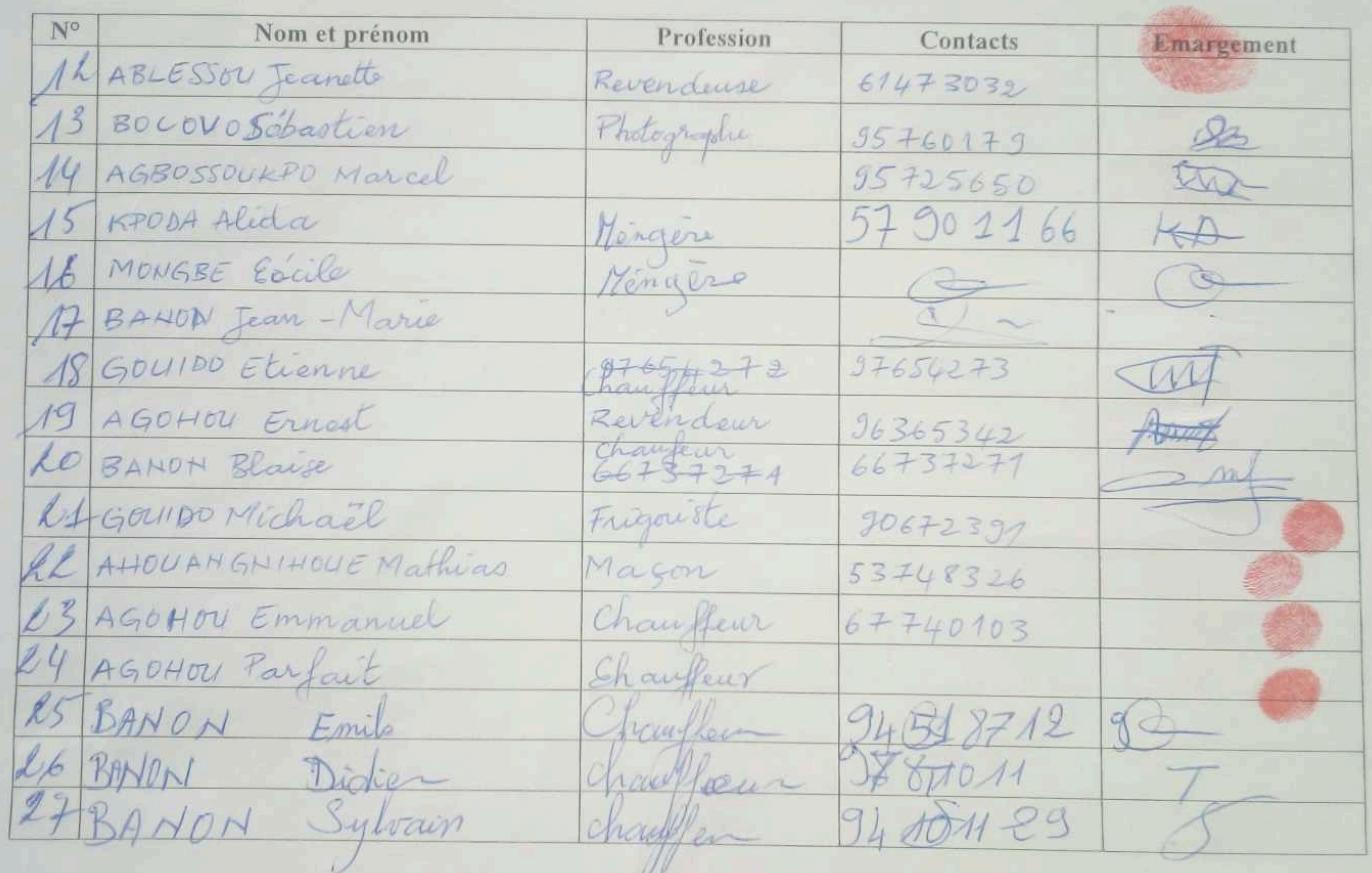 N° Nom et prénom Profession Contacts Emargement
12 ABLESSOU Jeanette Revendeuse 61473032
13 BOCOVO Sébastien Photographe 95760179
14 AGBOSSOUKPO Marcel 95725650
15 KPODA Alida Méngère 57 90 11 66 KA
16 MONGBE Cécile Méngère
17 BANON Jean-Marie
18 GOUIDO Etienne 97654272 Chauffeur 97654273
19 AGOHOU Ernest Revendeur 96365342
20 BANON Blaise Chaufeur 66737271 66737271
21 GOUIDO Michaël Frigoriste 90672391
22 AHOUANGNIHOUE Mathias Maçon 53748326
23 AGOHOU Emmanuel Chauffeur 67740103
24 AGOHOU Parfait Chauffeur
25 BANON Emile Chauffeur 94 51 87 12
26 BANON Didier chauffeur
27 BANON Sylvain chauffeur 94 10 11 29